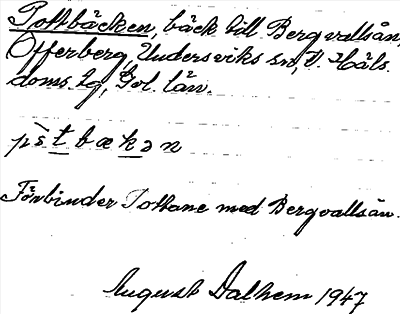 Tottbäcken, bäck till Bergvallsån,
Offerberg, Undersviks sn, V. Häls.
doms. tg, Gvl. län.
Förbinder Tottane med Bergvallsån.
August Dalhem 1947